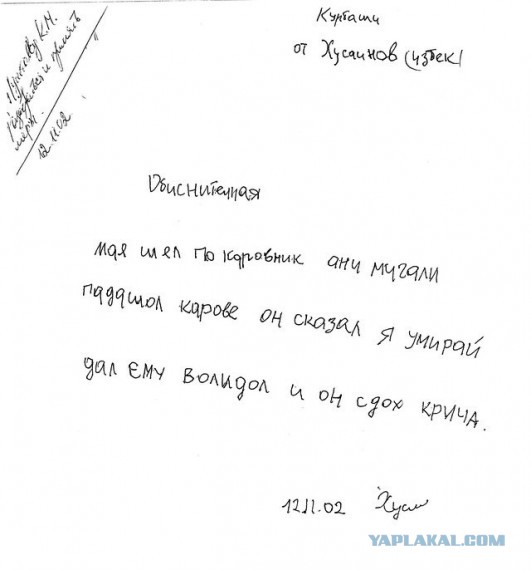 К.М.
разобраться и принять
меры.
12.11.02
Курташи
от Хусаинов (узбек)
Обиснителная
мая шел по каровник ани мучали
падашол карове он сказал я умирай
дал ему волидол и он сдох крича.
12.11.02 Хусаи
YAPLAKAL.COM